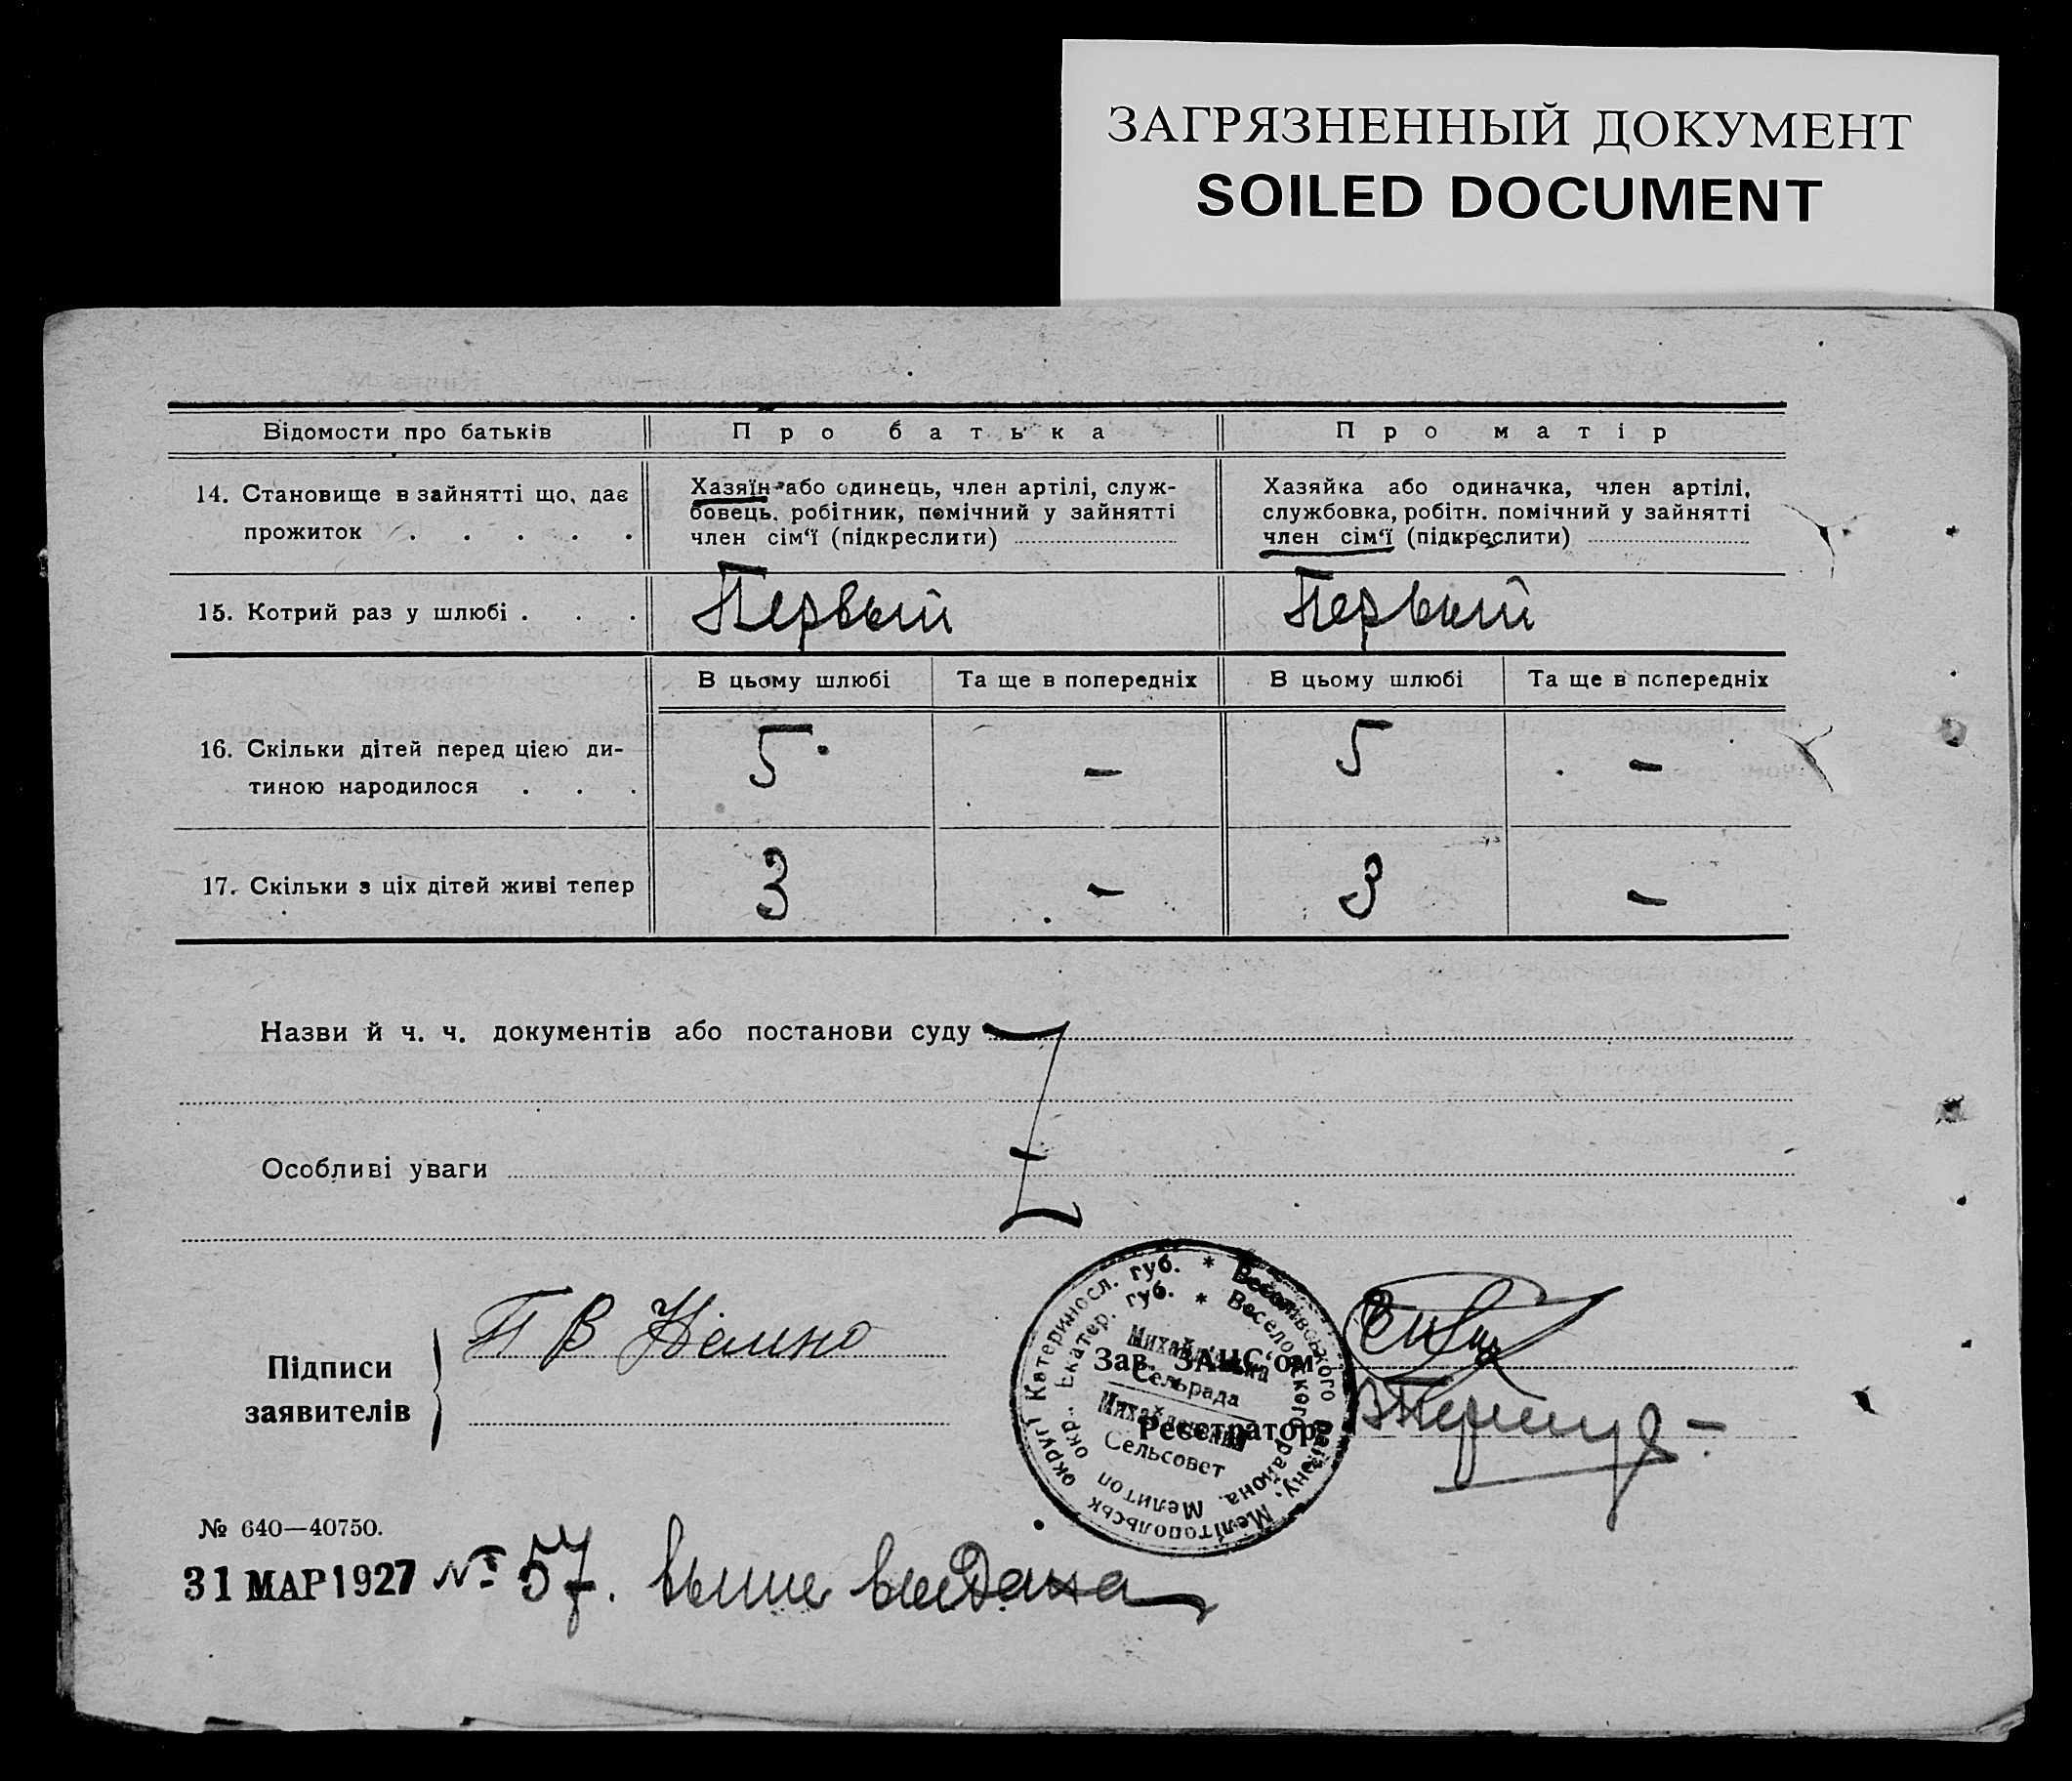 ЗАГРЯЗНЕННЫЙ ДОКУМЕНТ
SOILED DOCUMENT
Відомости про батьків
Про батька
Про матір
14. Становище в зайнятті що, дає
прожиток . . . . .
Хазяїн або одинець, член артілі, служ-
бовець, робітник, помічний у зайнятті
член сім‘ї (підкреслити)
Хазяйка або одиначка, член артілі,
службовка, робітн. помічний у зайнятті
член сім‘ї (підкреслити)
15. Котрий раз у шлюбі . . .
Первый
Первый
В цьому шлюбі
Та ще в попередніх
В цьому шлюбі
Та ще в попередніх
16. Скільки дітей перед цією ди-
тиною народилося . . .
5
-
5
-
17. Скільки з ціх дітей живі тепер
3
-
3
-
Назви й ч. ч. документів або постанови суду
Особливі уваги
Підписи
заявителів
П В
Зав. ЗАГС‘ом
Реєстратор
Катериносл. губ. * Веселівського району, Мелітопольськ округ
Екатер. губ. * Веселовского района. Мелитоп окр.
Михайлівська
Сельрада
Михайловский
Сельсовет
№ 640—40750.
31 МАР 1927 № 57. выпис выдана